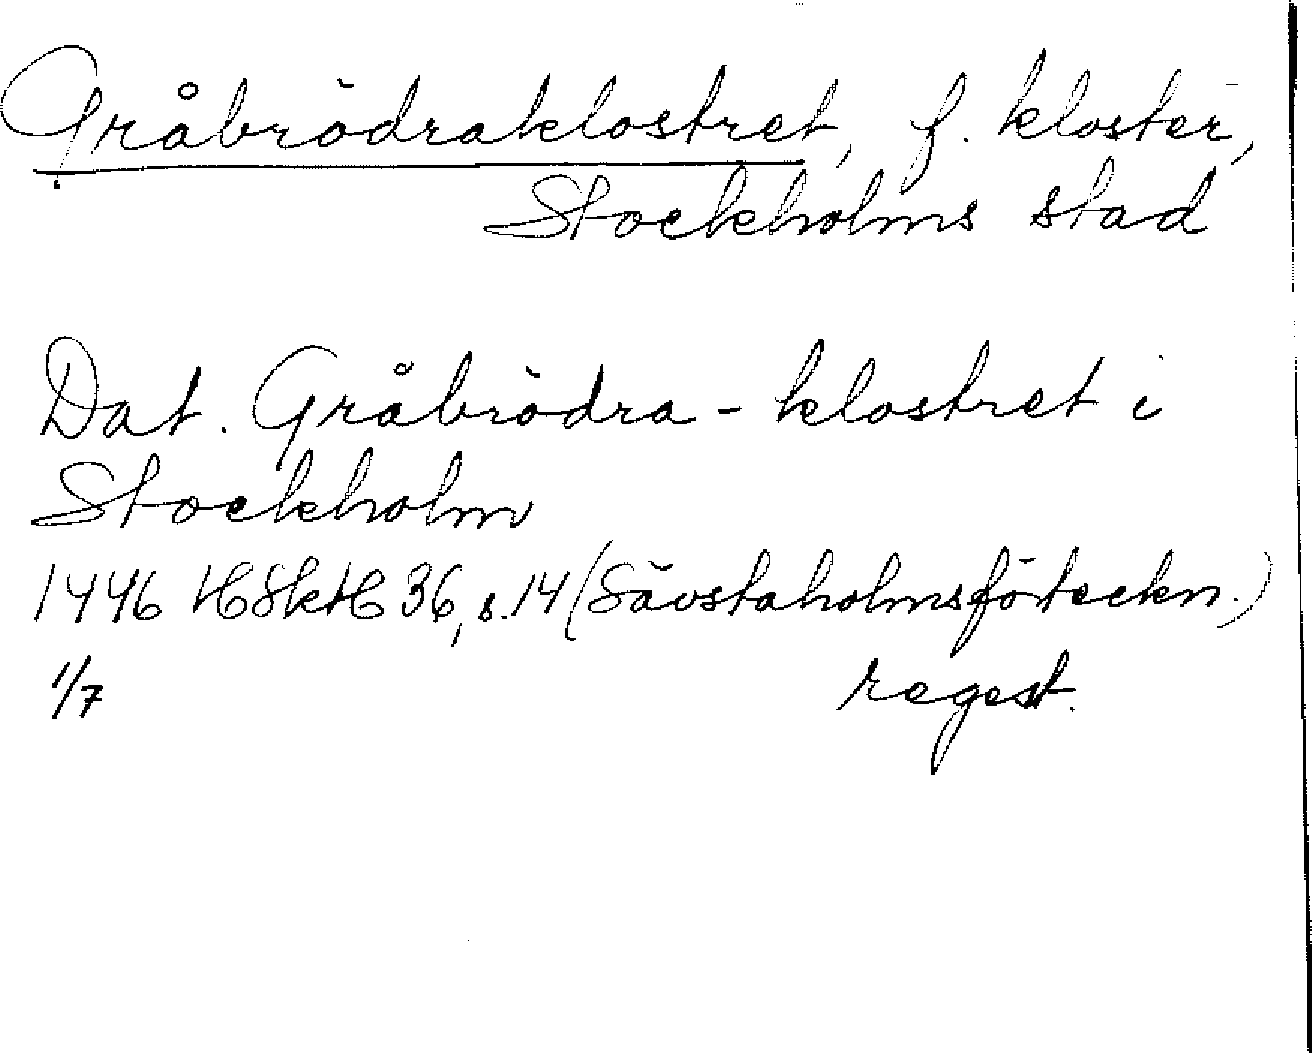 Gråbrödraklostret, f. kloster,
Stockholms stad
Dat. Gråbrödra-klostret i
Stockholm
1446 HSkH 36, s. 14 (Sävstaholmsförteckn.)
1/7 regest.